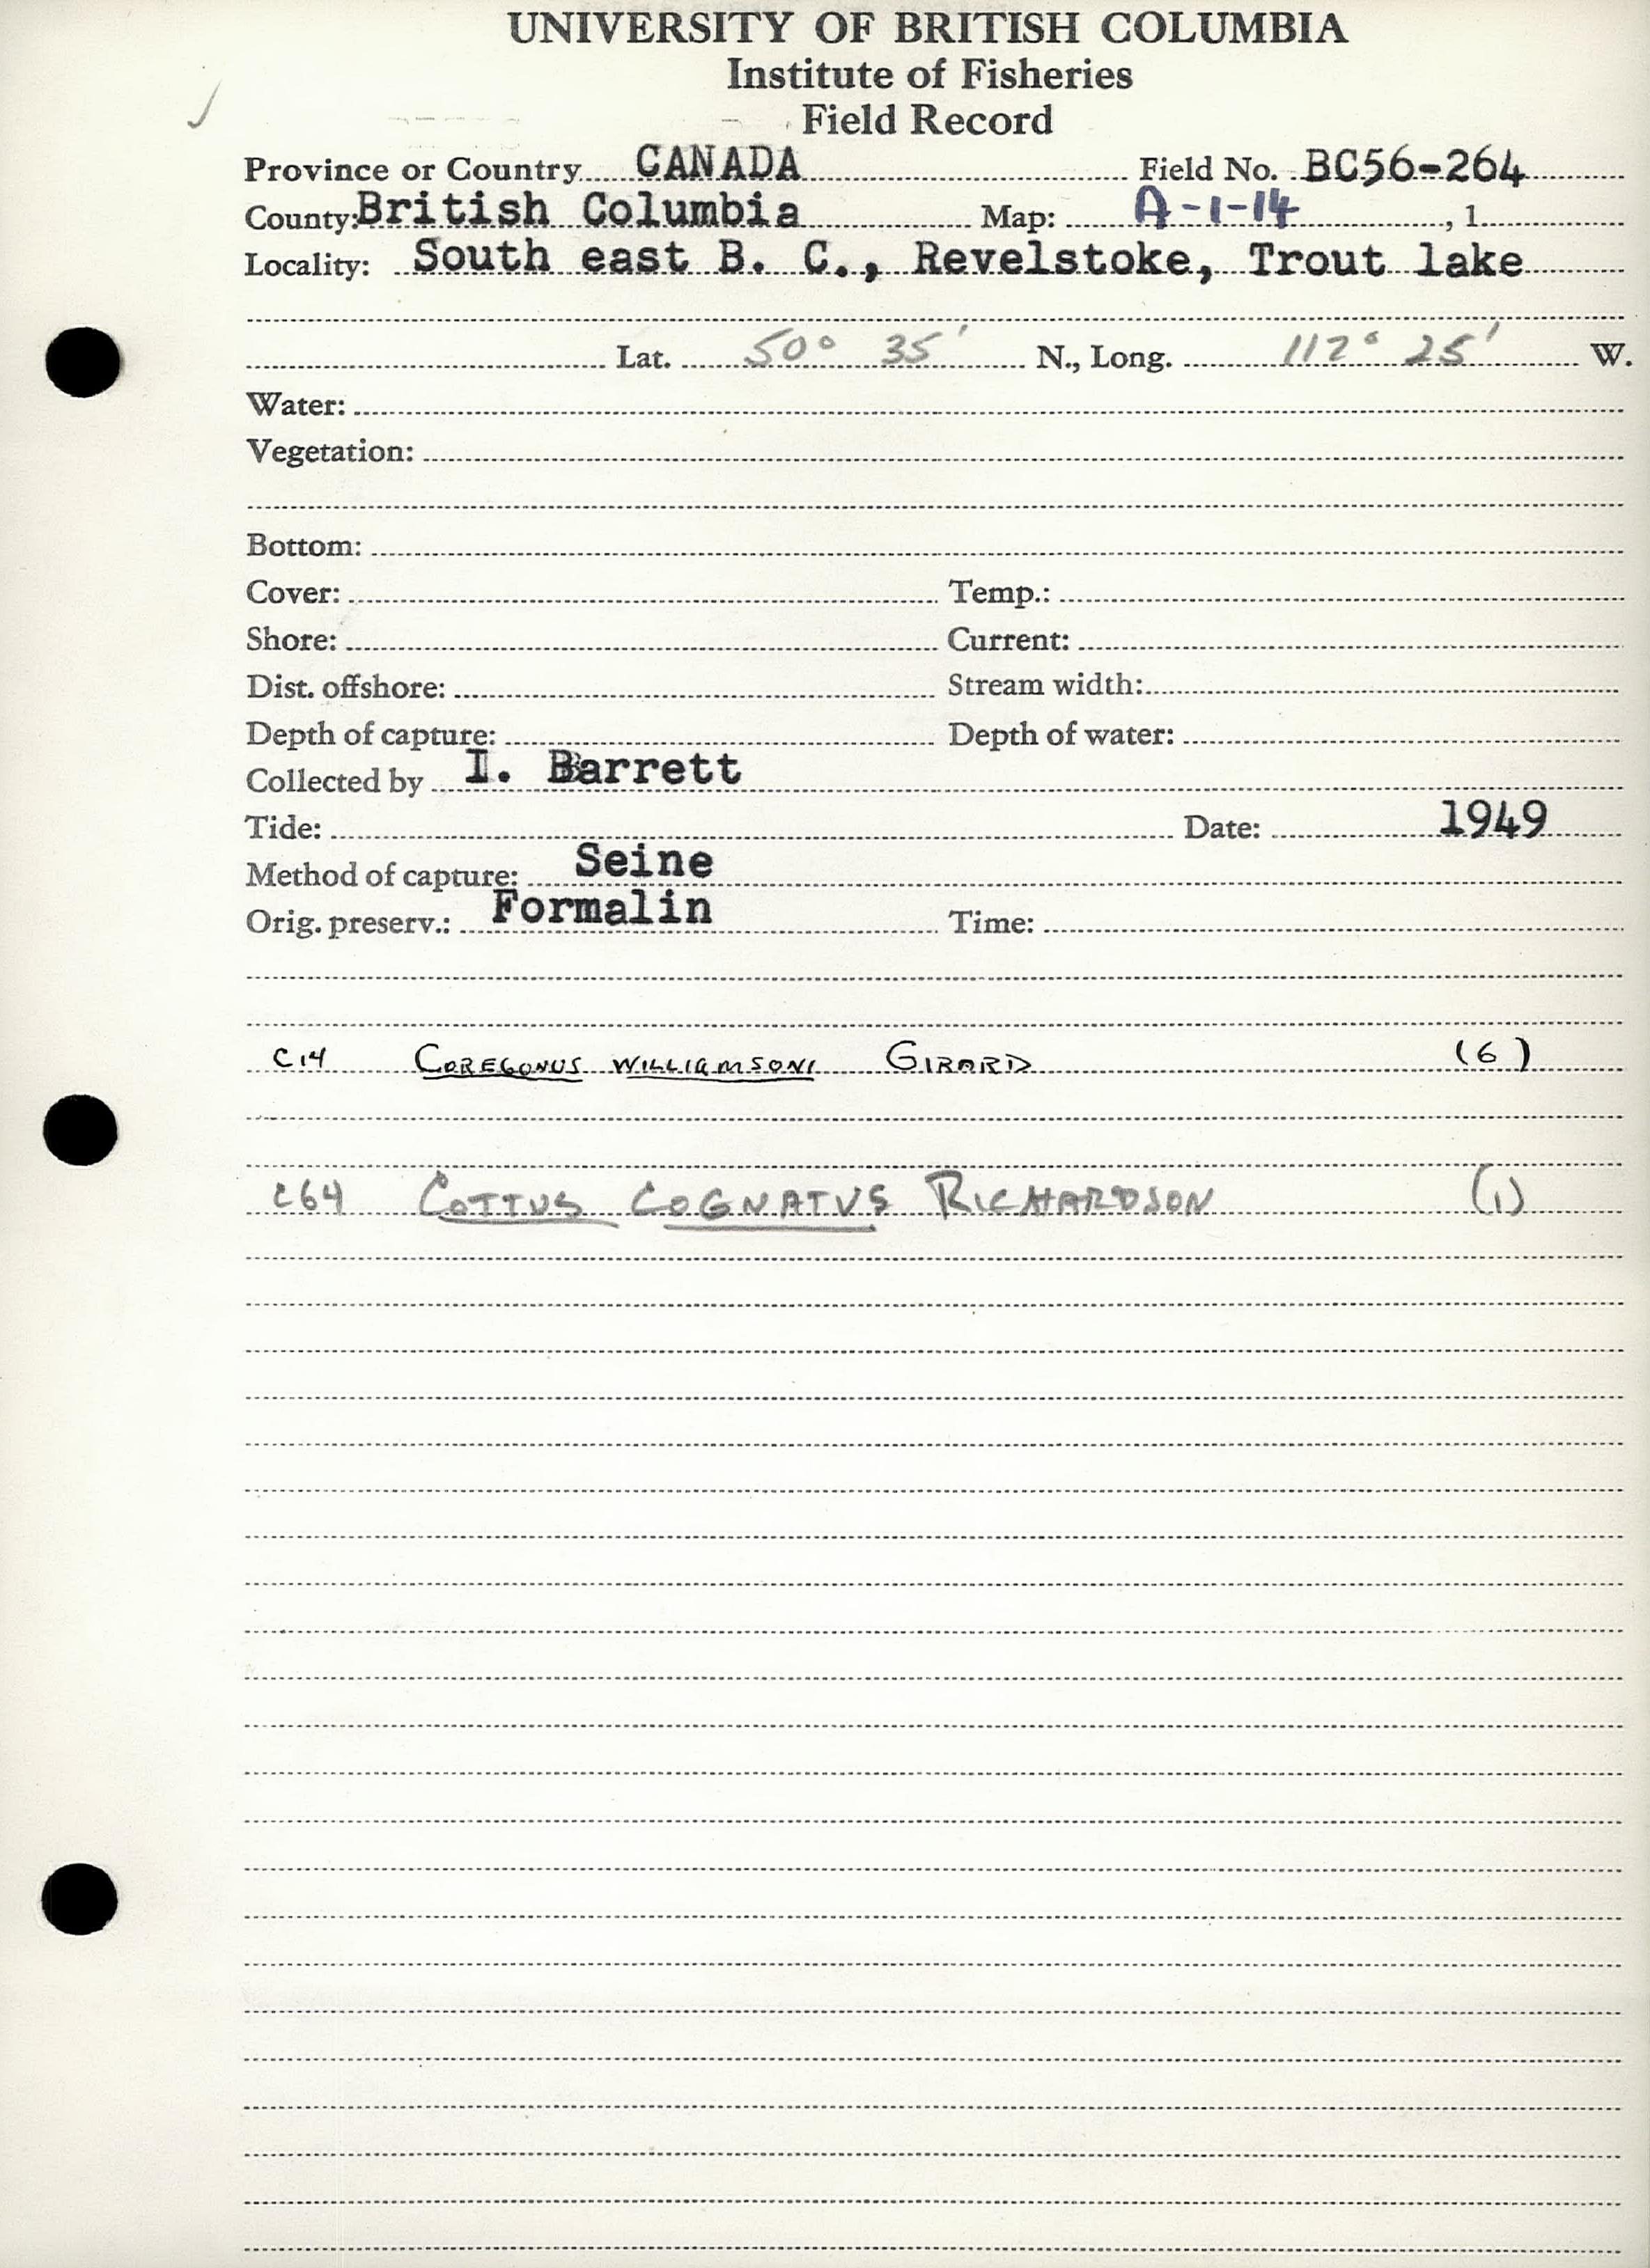 UNIVERSITY OF BRITISH COLUMBIA
Institute of Fisheries
Field Record
Province or Country CANADA Field No. BC56-264
County: British Columbia Map: A-1-14, 1
Locality: South east B. C., Revelstoke, Trout lake
Lat. 50° 35' N., Long. 112° 25' W.
Water:
Vegetation:
Bottom:
Cover: Temp.:
Shore: Current:
Dist. offshore: Stream width:
Depth of capture: Depth of water:
Collected by I. Barrett
Tide: Date: 1949
Method of capture: Seine
Orig. preserv.: Formalin Time:
C14 COREGONUS WILLIAMSONI GIRARD (6)
C64 COTTUS COGNATUS RICHARDSON (1)